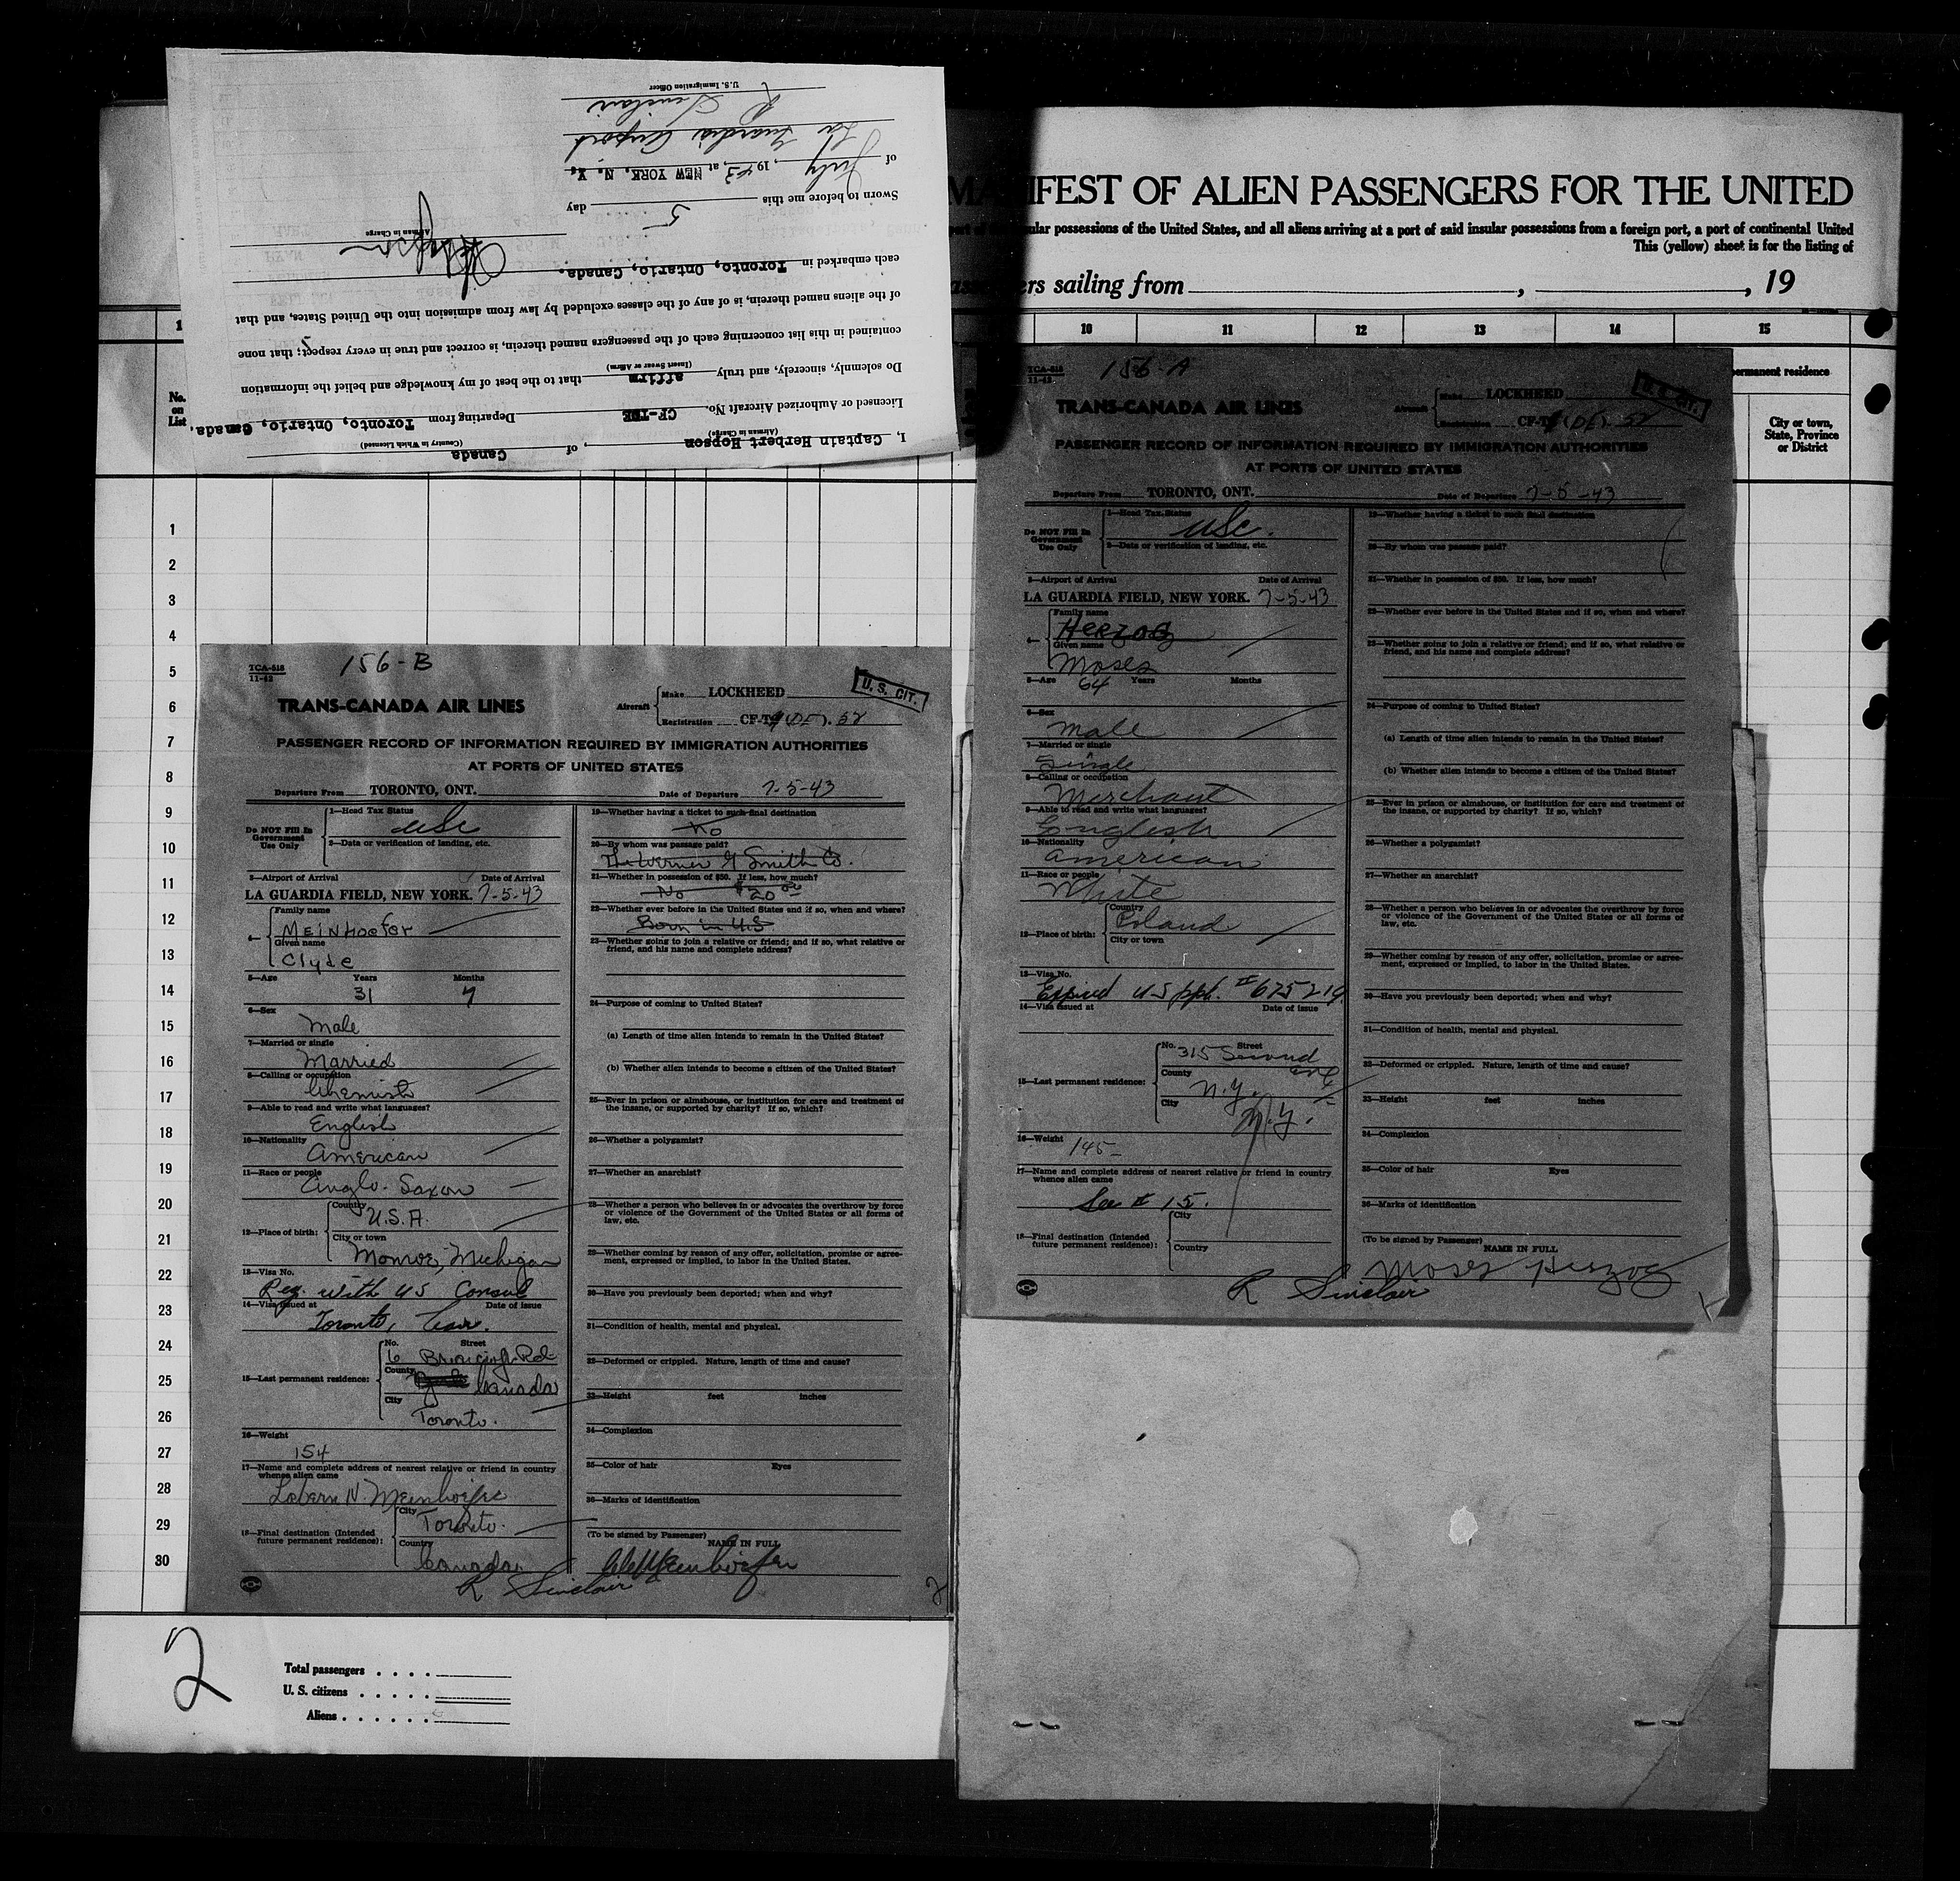 I, Captain Herbert Hopson, of Canada
(Airman in Charge) (Country in Which Licensed)
Licensed or Authorized Aircraft No. CF-TDE Departing from Toronto, Ontario, Canada,
Do solemnly, sincerely, and truly affirm that to the best of my knowledge and belief the information
(Insert Swear or Affirm)
contained in this list concerning each of the passengers named therein, is correct and true in every respect; that none
of the aliens named therein, is of any of the classes excluded by law from admission into the United States, and that
each embarked in Toronto, Ontario, Canada.
Airman in Charge
Sworn to before me this 5 day
of July, 1943, at NEW YORK, N. Y.
La Guardia Airport
R Sinclair
U. S. Immigration Officer
MANIFEST OF ALIEN PASSENGERS FOR THE UNITED
insular possessions of the United States, and all aliens arriving at a port of said insular possessions from a foreign port, a port of continental United
This (yellow) sheet is for the listing of
sailing from , , 19
10 11 12 13 14 15
permanent residence
City or town, State, Province or District
No. on List
1
2
3
4
5
6
7
8
9
10
11
12
13
14
15
16
17
18
19
20
21
22
23
24
25
26
27
28
29
30
TCA-518
11-42
156-B
U. S. CIT.
TRANS-CANADA AIR LINES
Aircraft Make LOCKHEED
Registration CF-T
PASSENGER RECORD OF INFORMATION REQUIRED BY IMMIGRATION AUTHORITIES
AT PORTS OF UNITED STATES
Departure From TORONTO, ONT. Date of Departure 7-5-43
Do NOT Fill In Government Use Only
1—Head Tax Status USC
2—Data or verification of landing, etc.
3—Airport of Arrival Date of Arrival
LA GUARDIA FIELD, NEW YORK. 7-5-43
4— Family name
MEINHOEFER
Given name
Clyde
5—Age Years Months
31 7
6—Sex
Male
7—Married or single
Married
8—Calling or occupation
Chemist
9—Able to read and write what languages?
English
10—Nationality
American
11—Race or people
Anglo-Saxon
12—Place of birth: Country
U.S.A.
City or town
Monroe, Michigan
13—Visa No.
Reg. with US Consul
14—Visa issued at Date of issue
Toronto, Can.
15—Last permanent residence: No. Street
6 Rd
County
Canada
City
Toronto.
16—Weight
154
17—Name and complete address of nearest relative or friend in country whence alien came
N. Meinhoefer
18—Final destination (Intended future permanent residence): City
Toronto.
Country
Canada
R Sinclair
19—Whether having a ticket to such final destination
No
20—By whom was passage paid?
The Werner G Smith Co.
21—Whether in possession of $50. If less, how much?
No $20.00
22—Whether ever before in the United States and if so, when and where?
Born in US
23—Whether going to join a relative or friend; and if so, what relative or friend, and his name and complete address?
24—Purpose of coming to United States?
(a) Length of time alien intends to remain in the United States?
(b) Whether alien intends to become a citizen of the United States?
25—Ever in prison or almshouse, or institution for care and treatment of the insane, or supported by charity? If so, which?
26—Whether a polygamist?
27—Whether an anarchist?
28—Whether a person who believes in or advocates the overthrow by force or violence of the Government of the United States or all forms of law, etc.
29—Whether coming by reason of any offer, solicitation, promise or agreement, expressed or implied, to labor in the United States.
30—Have you previously been deported; when and why?
31—Condition of health, mental and physical.
32—Deformed or crippled. Nature, length of time and cause?
33—Height feet inches
34—Complexion
35—Color of hair Eyes
36—Marks of identification
(To be signed by Passenger)
NAME IN FULL
2
TCA-518
11-42
156-A
TRANS-CANADA AIR LINES
Aircraft Make LOCKHEED
Registration CF-T
U. S. CIT.
PASSENGER RECORD OF INFORMATION REQUIRED BY IMMIGRATION AUTHORITIES
AT PORTS OF UNITED STATES
Departure From TORONTO, ONT. Date of Departure 7-5-43
Do NOT Fill In Government Use Only
1—Head Tax Status USC.
2—Data or verification of landing, etc.
3—Airport of Arrival Date of Arrival
LA GUARDIA FIELD, NEW YORK. 7-5-43
4— Family name
HERZOG
Given name
Moses
5—Age Years Months
64
6—Sex
Male
7—Married or single
Single
8—Calling or occupation
Merchant
9—Able to read and write what languages?
English
10—Nationality
American
11—Race or people
White
12—Place of birth: Country
Poland
City or town
13—Visa No.
Expired US ppt. # 675219
14—Visa issued at Date of issue
15—Last permanent residence: No. Street
315 Second Ave
County
N.Y.
City
N.Y.
16—Weight
145
17—Name and complete address of nearest relative or friend in country whence alien came
See # 15.
18—Final destination (Intended future permanent residence): City
Country
R Sinclair
19—Whether having a ticket to such final destination
20—By whom was passage paid?
21—Whether in possession of $50. If less, how much?
22—Whether ever before in the United States and if so, when and where?
23—Whether going to join a relative or friend; and if so, what relative or friend, and his name and complete address?
24—Purpose of coming to United States?
(a) Length of time alien intends to remain in the United States?
(b) Whether alien intends to become a citizen of the United States?
25—Ever in prison or almshouse, or institution for care and treatment of the insane, or supported by charity? If so, which?
26—Whether a polygamist?
27—Whether an anarchist?
28—Whether a person who believes in or advocates the overthrow by force or violence of the Government of the United States or all forms of law, etc.
29—Whether coming by reason of any offer, solicitation, promise or agreement, expressed or implied, to labor in the United States.
30—Have you previously been deported; when and why?
31—Condition of health, mental and physical.
32—Deformed or crippled. Nature, length of time and cause?
33—Height feet inches
34—Complexion
35—Color of hair Eyes
36—Marks of identification
(To be signed by Passenger)
NAME IN FULL
Moses Herzog
2
Total passengers
U. S. citizens
Aliens